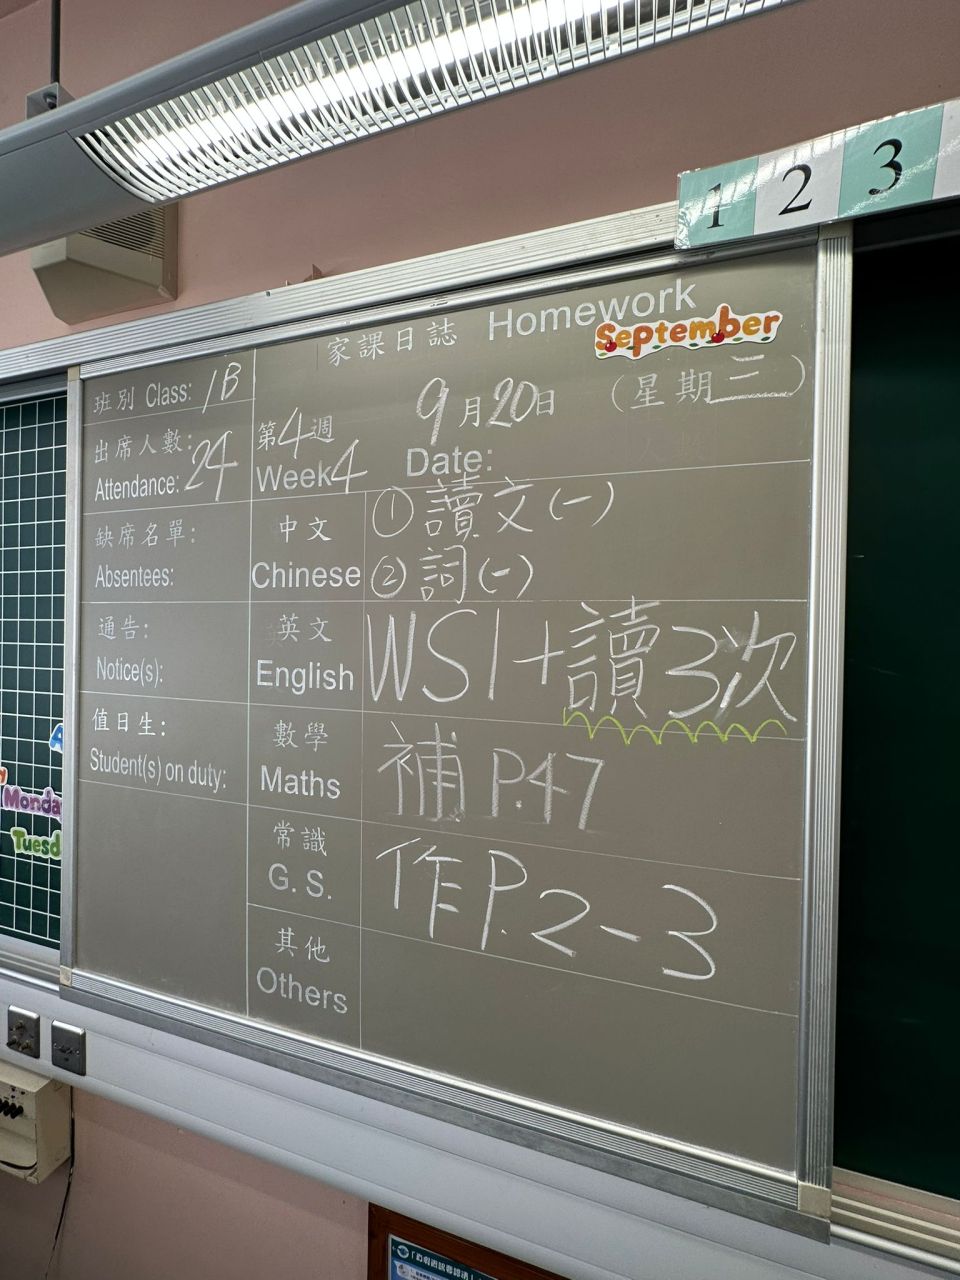 1 2 3
家課日誌 Homework
September
班別 Class: 1B
9月20日 (星期三)
Date:
出席人數:
Attendance: 24
第4週
Week 4
缺席名單:
Absentees:
中文
Chinese
① 讀文(一)
② 詞(一)
通告:
Notice(s):
英文
English
WS1+讀3次
值日生:
Student(s) on duty:
數學
Maths
補 P.47
常識
G. S.
作 P.2-3
其他
Others
Monda
Tuesd